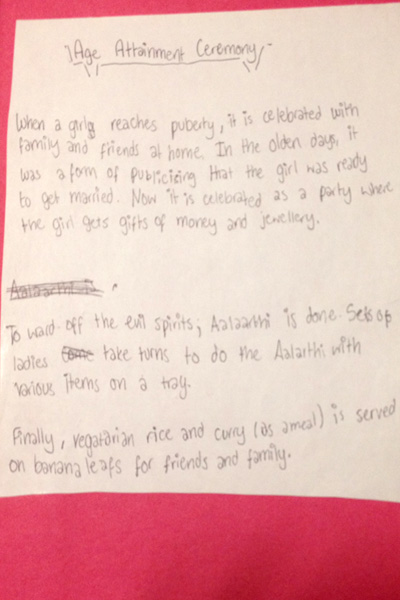 Age Attainment Ceremony
When a girl reaches puberty, it is celebrated with
family and friends at home. In the olden days, it
was a form of publicizing that the girl was ready
to get married. Now it is celebrated as a party where
the girl gets gifts of money and jewellery.
Aalaarthi
To ward off the evil spirits, Aalaarthi is done. Sets of
ladies come take turns to do the Aalarthi with
various items on a tray.
Finally, vegatarian rice and curry (as a meal) is served
on banana leafs for friends and family.